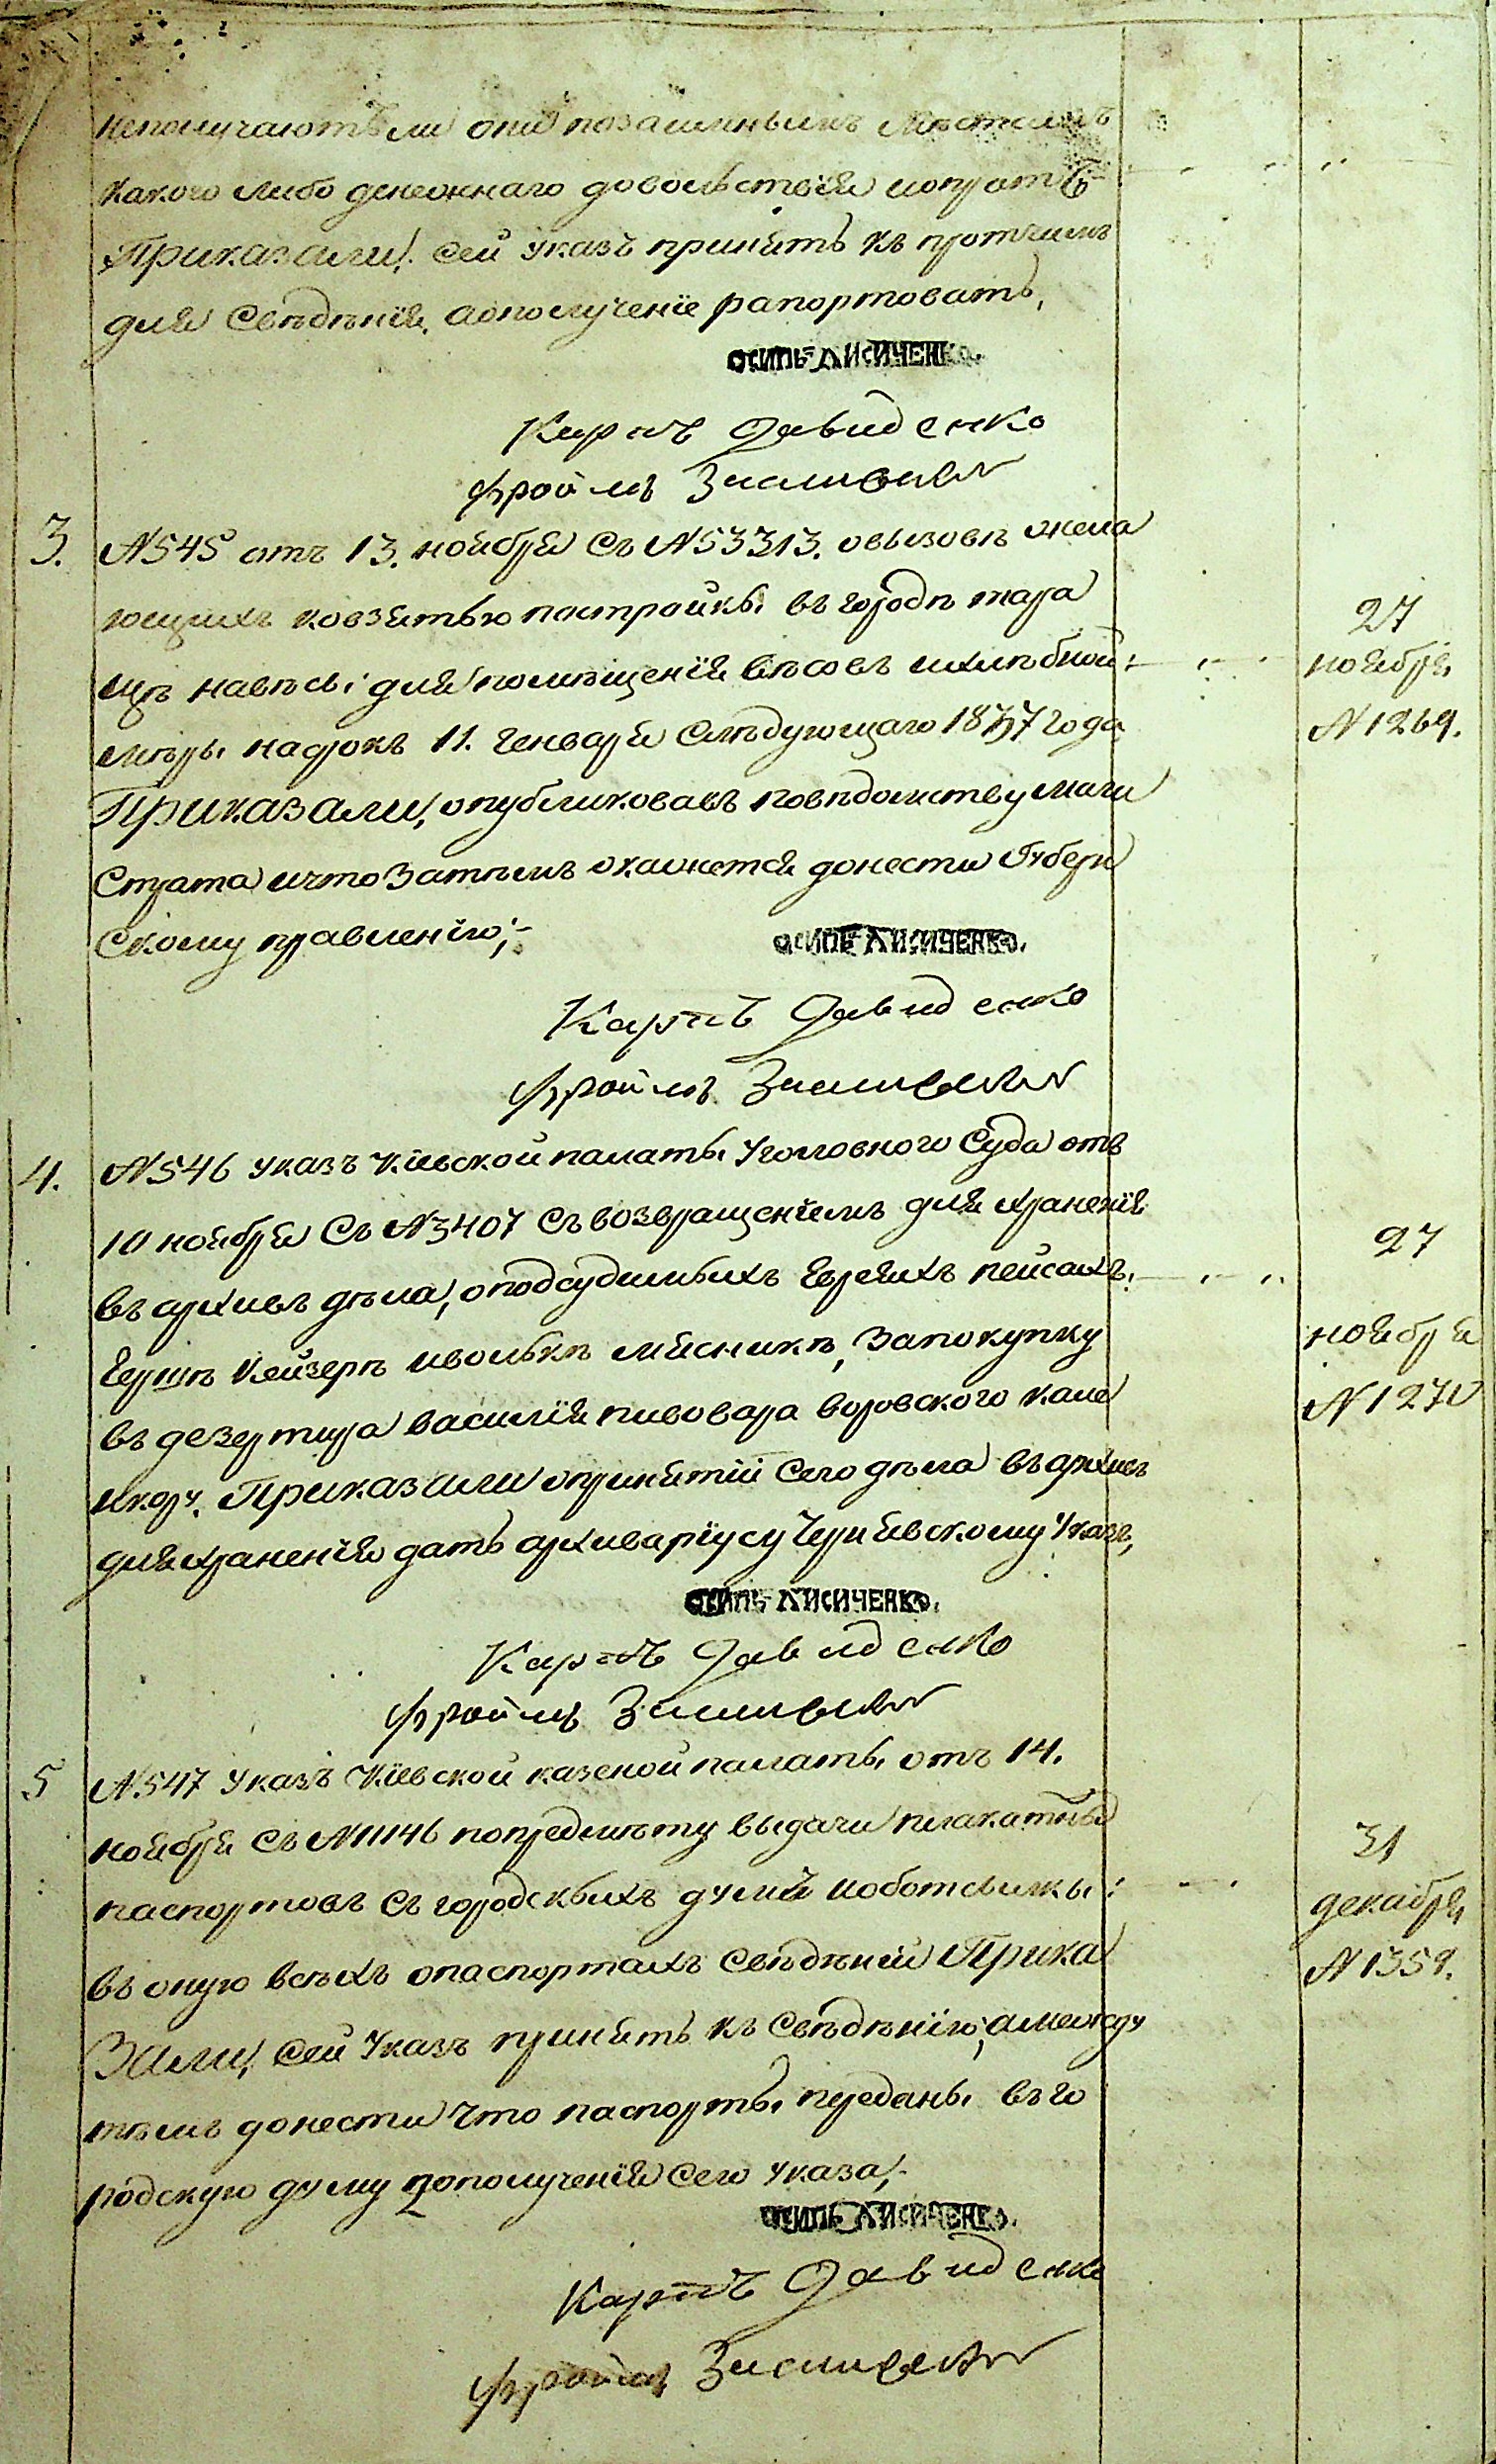 неполучаютъ ли они позаимнымъ мѣстамъ
какого либо денежнаго довольствія и опратѣ
Приказали, сей указъ принять къ протчимъ
для Свѣдѣнія, аополученіе рапортовать,
ОСИПЪ ЛИСИЧЕНКО.
Карпъ Давиденко
Фроймъ
3. №545 отъ 13. ноября Съ №53313. овызовѣ жела
ющихъ ковзятью постройкы въ городѣ тара
щѣ навѣсы для помѣщенія вѣсовъ ихлѣбной
мѣры насрокъ 11. Генваря Слѣдующаго 1837 года
Приказали, опубликовавъ повѣдомству маги
Страта ичто Затѣмъ окажется донести Губерн
Скому правленію;
27
ноября
№1269.
ОСИПЪ ЛИСИЧЕНКО.
Карпъ Давиденко
Фроймъ
4. №546 указъ Кіевской палаты Уголовного Суда отъ
10 ноября Съ №3407 Съ возвращеніемъ для храненія
въ архивѣ дѣла, оподсудимыхъ Евреяхъ пейсахъ
Гершѣ Кейзерѣ иволькѣ мясникѣ, Запокупку
въ дезертира василія пивовара воровского каме
Приказали опринятіи Сего дѣла въ архивъ
дляхраненія дать архиваріусу Чернявскому Указъ,
27
ноября
№1270
ОСИПЪ ЛИСИЧЕНКО.
Карпъ Давиденко
Фроймъ
5 №547 указъ Кіевской казеной палаты отъ 14.
ноября Съ №11146 попредмѣту выдачи плакатныхъ
паспортовъ Съ городскыхъ думъ иоботсылкы
въ оную всѣхъ опаспортахъ Свѣдѣній Прика
Зали, сей Указъ принять къ Свѣдѣнію, а между
тѣмъ донести что паспорты преданы въ го
родскую думу дополученія Сего указа,
31
декабря
№1359.
ОСИПЪ ЛИСИЧЕНКО.
Карпъ Давиденко
Фроймъ